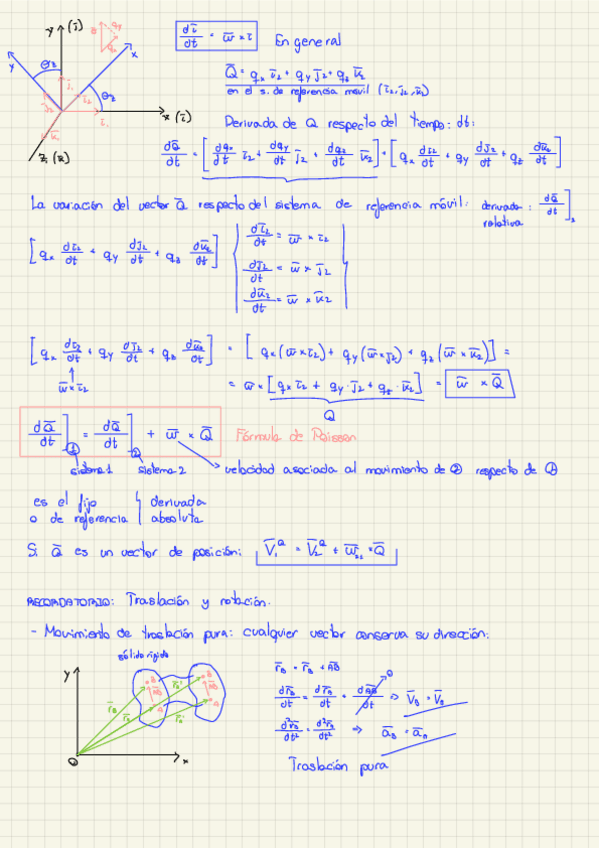 y (j)
x
y
θ₂
θ₂
j₁
i₂
i₁
x (i)
z, (k)
dī/dt = w̄ × ī
En general
Q̄ = qx ī₂ + qy j̄₂ + qz k̄₂
en el s. de referencia móvil (ī₂, j̄₂, k̄₂)
Derivada de Q respecto del tiempo: dt:
dQ̄/dt = [dqx/dt ī₂ + dqy/dt j̄₂ + dqz/dt k̄₂] + [qx dī₂/dt + qy dj̄₂/dt + qz dk̄₂/dt]
La variación del vector Q̄ respecto del sistema de referencia móvil: derivada relativa: dQ̄/dt]₂
[qx dī₂/dt + qy dj̄₂/dt + qz dk̄₂/dt]
dī₂/dt = w̄ × ī₂
dj̄₂/dt = w̄ × j̄₂
dk̄₂/dt = w̄ × k̄₂
[qx dī₂/dt + qy dj̄₂/dt + qz dk̄₂/dt] = [qx(w̄×ī₂) + qy(w̄×j̄₂) + qz(w̄×k̄₂)] =
w̄×ī₂
= w̄×[qx ī₂ + qy·j̄₂ + qz·k̄₂] = w̄ × Q̄
Q
dQ̄/dt]① = dQ̄/dt]② + w̄ × Q̄
Fórmula de Poisson
sistema 1
sistema 2
velocidad asociada al movimiento de ② respecto de ①
es el fijo
o de referencia
derivada
absoluta
Si Q̄ es un vector de posición: V̄₁^Q = V̄₂^Q + w̄₂₁ × Q̄
RECORDATORIO: Traslación y rotación.
- Movimiento de traslación pura: cualquier vector conserva su dirección:
sólido rígido
y
B
AB
A
r̄B
r̄A
r̄B'
r̄A'
B'
A'
O
x
r̄B = r̄A + AB
dr̄B/dt = dr̄A/dt + dAB/dt 0 ⇒ V̄B = V̄A
d²r̄B/dt² = d²r̄A/dt² ⇒ āB = āA
Traslación pura